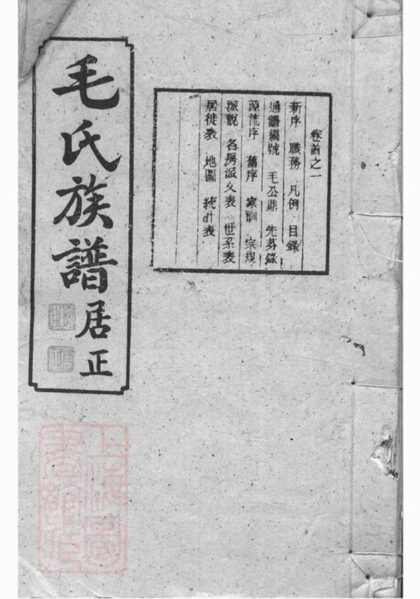 卷首之一
新序 職務 凡例 目錄
通譜編號 毛公鼎 先芬錄
源流序 舊序 家訓 宗規
派說 各房派久表 世系表
居徙表 地圖 統計表
毛氏族譜
居正
上海圖書館藏